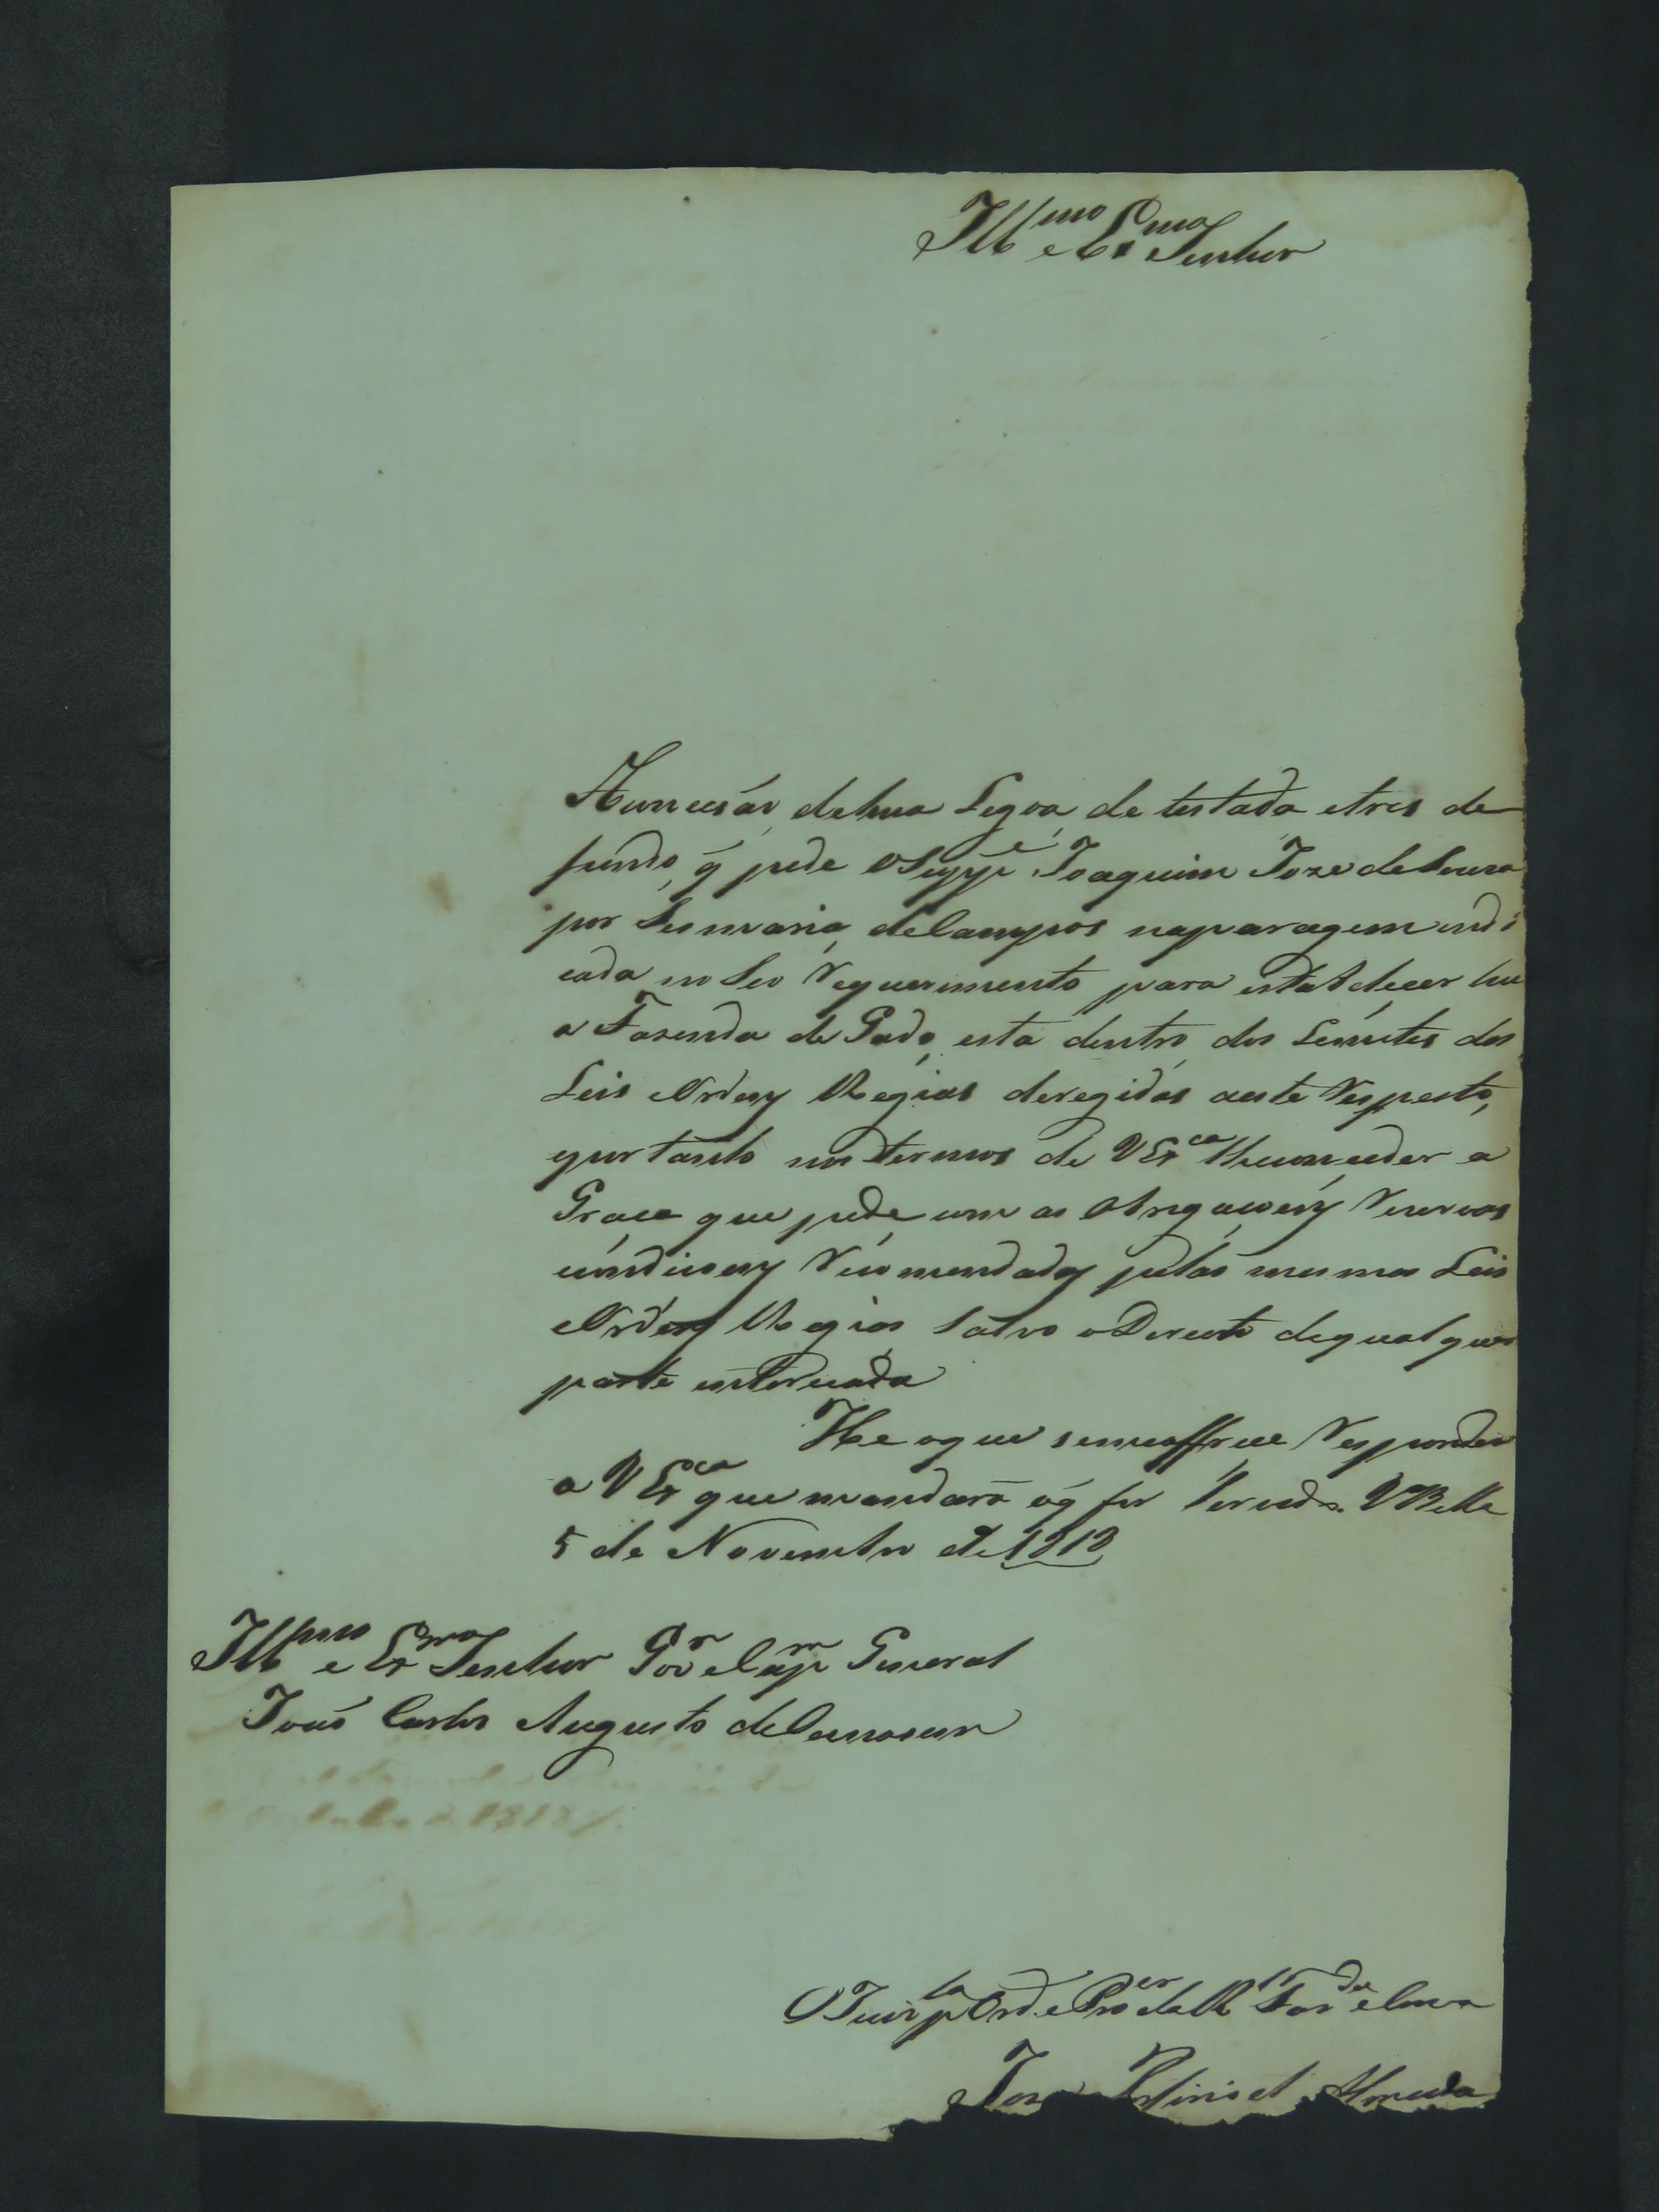 Ill^mo e Ex^mo Senhor
A concesaõ de hua Legoa de testada e tres de
fundo, q̃ pede o Supp^e Joaquim Joze de Souza
por Sesmaria de Campos na paragem indi
cada no Seo Requerimento para estabelecer hu
a Fazenda de Gado, esta dentro dos Lemites das
Leis e Ordens Regias deregidas a este Respeito,
e por tanto nos termos de V Ex^ca lhe conceder a
Graça que pede com as obrigaçoens Reservas
condiçoens Recomendadas pelas mesmas Leis
e Ordens Regias Salvo o Dereito de qual quer
parte interecada
He o que se me offrece Responder
a V Ex^ca que mandara o q̃ for Servido. V Bella
5 de Novembro de 1818
Ill^mo e Ex^mo Senhor Gov^or e Cap^m General
Joaõ Carlos Augusto de Oeynhausen
O Juiz p^la Ord e Pro^or da R^l Faz^da e Coroa
Joze